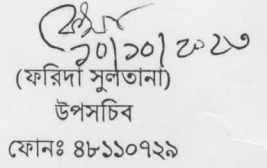 ১০/১০/২০২৩
(ফরিদা সুলতানা)
উপসচিব
ফোনঃ ৪৮১১০৭২৯